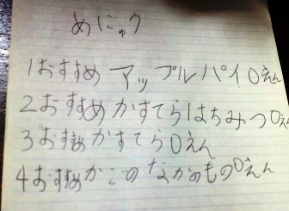 めにゅう
1おすすめ アップルパイ0えん
2おすすめかすてらはちみつ0えん
3おすすめかすてら0えん
4おすすめかごのなかのもの0えん